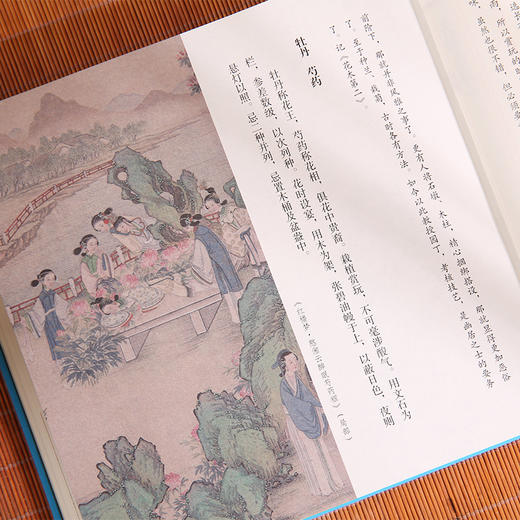 雨，所以赏玩的
味，虽然也很不错，但必须要
前除下，那就并非风雅之事了。更有人将石墩、木柱，精心捆绑搭设，那就显得更加恶俗
了。至于种兰、栽菊，古时各有方法。如今以此教授园丁，考核技艺，是幽居之士的要务
了。记《花木第二》。
牡丹 芍药
牡丹称花王，芍药称花相，俱花中贵裔。栽植赏玩，不可毫涉酸气。用文石为
栏，参差数级，以次列种。花时设宴，用木为架，张碧油幔于上，以蔽日色，夜则
悬灯以照。忌二种并列，忌置木桶及盆盎中。
《红楼梦·憨湘云醉眠芍药裀》（局部）